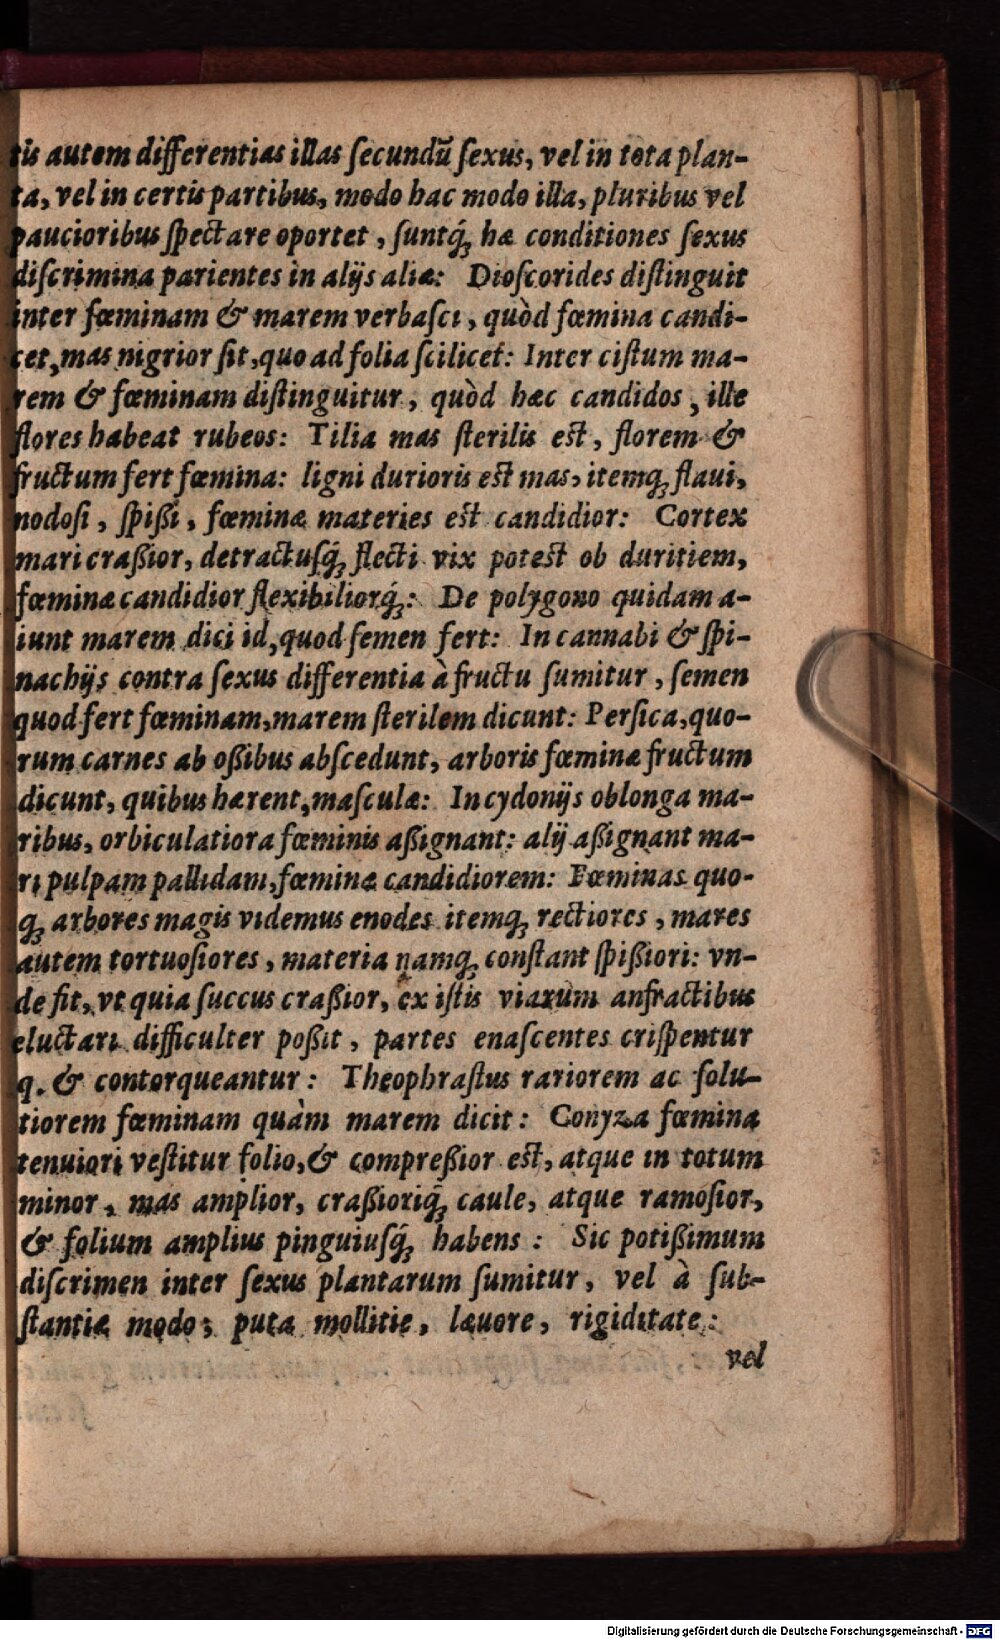 tis autem differentias illas ſecundũ ſexus, vel in tota plan-
ta, vel in certis partibus, modo hac modo illa, pluribus vel
paucioribus ſpectare oportet, ſuntq́; hæ conditiones ſexus
diſcrimina parientes in alijs aliæ: Dioſcorides diſtinguit
inter fœminam & marem verbaſci, quòd fœmina candi-
cet, mas nigrior ſit, quo ad folia ſcilicet: Inter ciſtum ma-
rem & fœminam diſtinguitur, quòd hæc candidos, ille
flores habeat rubeos: Tilia mas ſterilis eſt, florem &
fructum fert fœmina: ligni durioris eſt mas, itemq; flaui,
nodoſi, ſpißi, fœminæ materies eſt candidior: Cortex
mari craßior, detractuſq́; flecti vix poteſt ob duritiem,
fœminæ candidior flexibiliorq́;: De polygono quidam a-
iunt marem dici id, quod ſemen fert: In cannabi & ſpi-
nachijs contra ſexus differentia à fructu ſumitur, ſemen
quod fert fœminam, marem ſterilem dicunt: Perſica, quo-
rum carnes ab oßibus abſcedunt, arboris fœminæ fructum
dicunt, quibus hærent, maſculæ: In cydonijs oblonga ma-
ribus, orbiculatiora fœminis aßignant: alij aßignant ma-
ri pulpam pallidam, fœminæ candidiorem: Fœminas quo-
q; arbores magis videmus enodes itemq; rectiores, mares
autem tortuoſiores, materia namq; conſtant ſpißiori: vn-
de fit, vt quia ſuccus craßior, ex iſtis viarum anfractibus
eluctari difficulter poßit, partes enaſcentes criſpentur
q. & contorqueantur: Theophraſtus rariorem ac ſolu-
tiorem fœminam quàm marem dicit: Conyza fœmina
tenuiori veſtitur folio, & compreßior eſt, atque in totum
minor, mas amplior, craßioriq́; caule, atque ramoſior,
& folium amplius pinguiuſq́; habens: Sic potißimum
diſcrimen inter ſexus plantarum ſumitur, vel à ſub-
ſtantiæ modo; puta mollitie, læuore, rigiditate:
vel
Digitalisierung gefördert durch die Deutsche Forschungsgemeinschaft - DFG